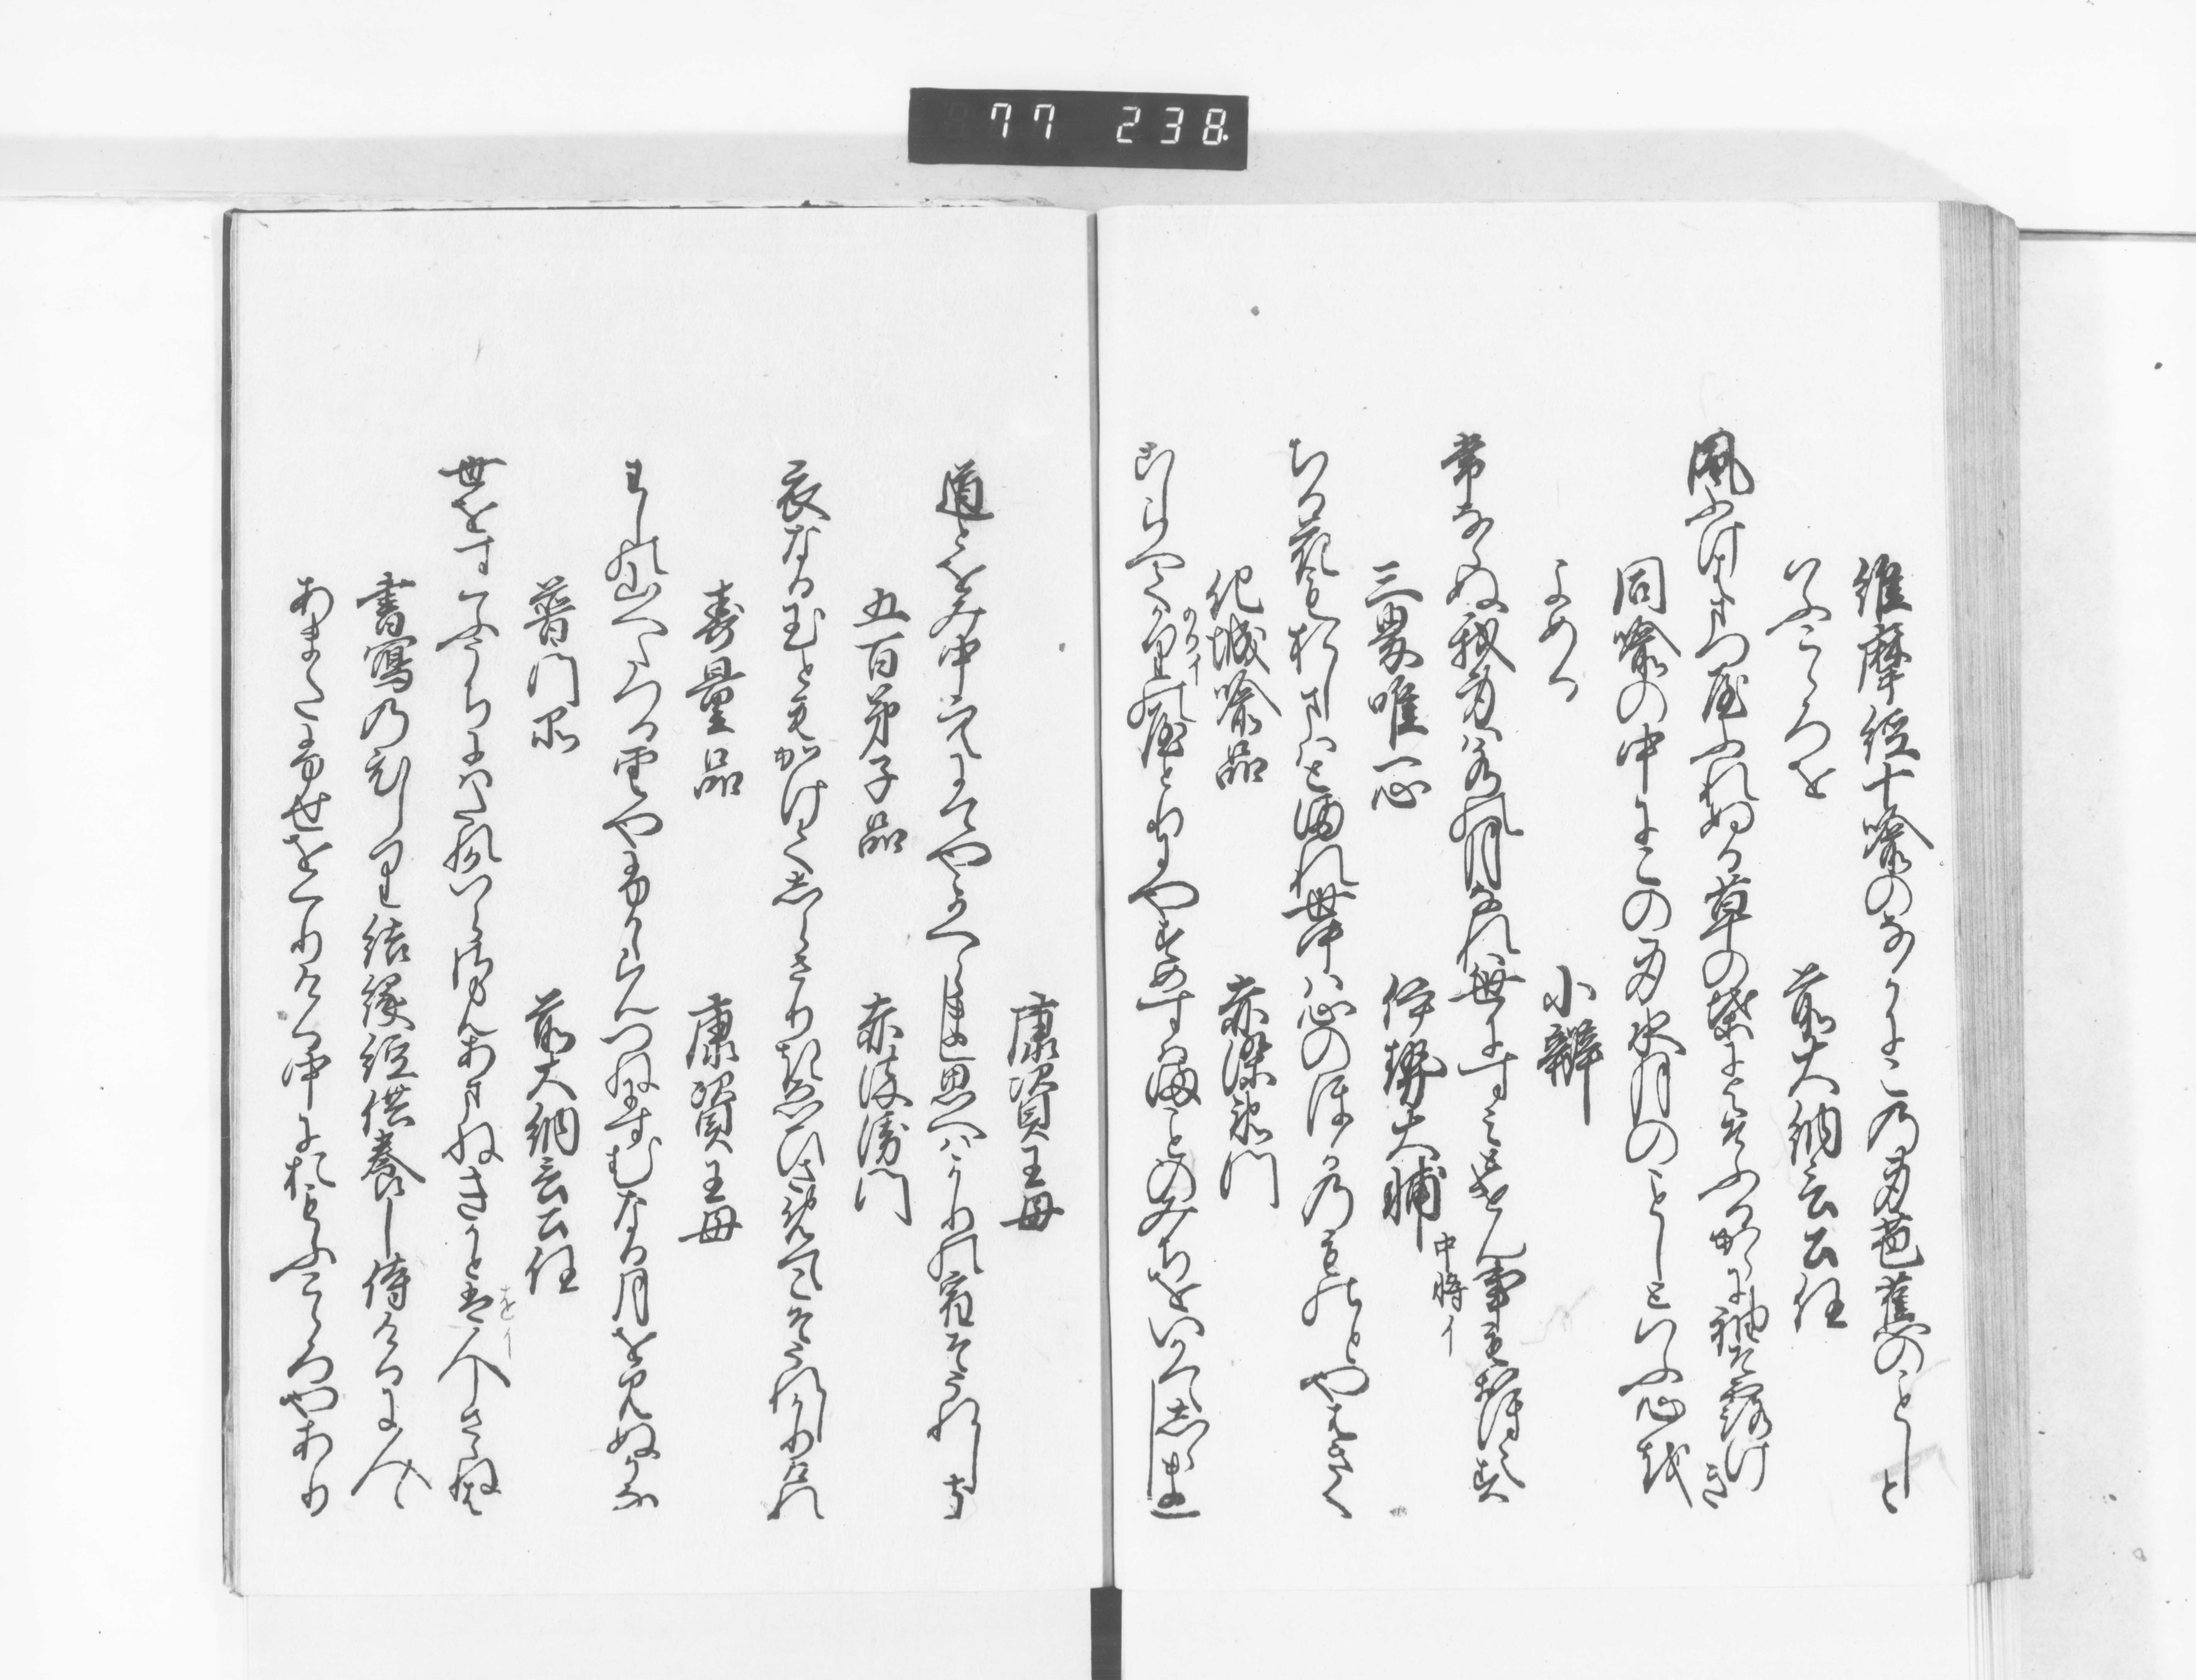 77 238
維摩経十喩のなかにこの身芭蕉のことしと
いふこゝろを
前大納言公任
風ふけはまつやふれぬる草の葉によそふるからに袖そ露けき
同喩の中にこの身水月のことしといふ心を
よめる
小辨
常ならぬ我身は水の月なれは世にすみとけん事もおほえす
三界唯一心
伊勢大輔
中将イ
ちる花もおしまはとまれ世中は心のほかの物とやはきく
化城喩品
赤染衛門
こしらへてかりの屋とりにやすめすはまことのみちをいかてしらまし
康資王母
道とをみ中空にてやかへらまし思へはかりの宿そうれしき
五百弟子品
赤染衛門
衣なる玉ともかけてしらさりきゑひさめてこそうれしかりけれ
寿量品
康資王母
わしの山へたつる雲やふかゝらんつねにすむなる月を見ぬかな
普門品
前大納言公任
世をすくふうちにはたれかいらさらんあまねきかとは人しさゝねは
をイ
書写のひしり結縁経供養し侍けるに人〳〵
あまたふせをくり侍ける中におもふこゝろやあり